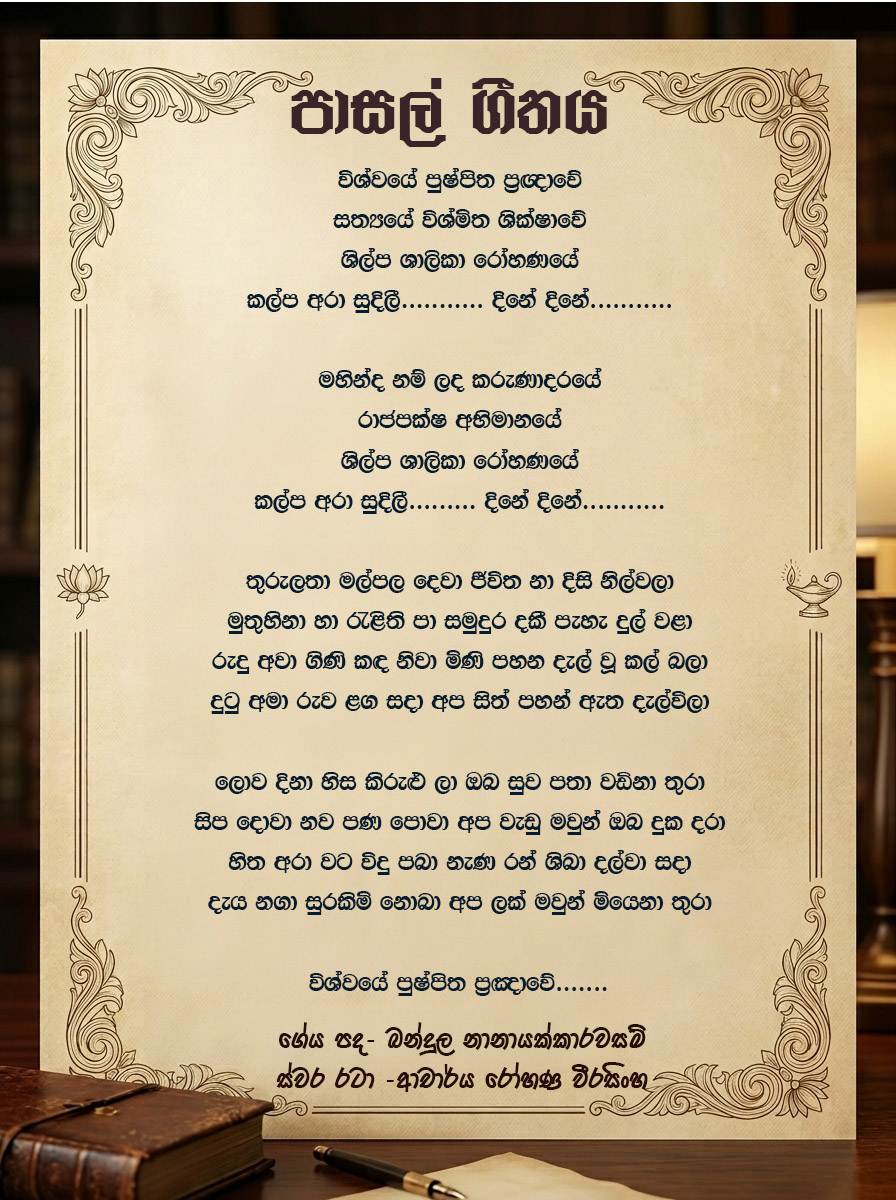 පාසල් ගීතය
විශ්වයේ පුෂ්පිත ප්‍රඥාවේ
සත්‍යයේ විශ්මිත ශික්ෂාවේ
ශිල්ප ශාලිකා රෝහණයේ
කල්ප අරා සුදිලී........... දිනේ දිනේ...........
මහින්ද නම් ලද කරුණාදරයේ
රාජපක්ෂ අභිමානයේ
ශිල්ප ශාලිකා රෝහණයේ
කල්ප අරා සුදිලී......... දිනේ දිනේ...........
තුරුලතා මල්පල දෙවා ජීවිත නා දිසි නිල්වලා
මුතුහිනා හා රැළිති පා සමුදුර දකී පැහැ දුල් වළා
රුදු අවා ගිණි කඳ නිවා මිණි පහන දැල් වූ කල් බලා
දුටු අමා රුව ළඟ සදා අප සිත් පහන් ඇත දැල්විලා
ලොව දිනා හිස කිරුළු ලා ඔබ සුව පතා වඩිනා තුරා
සිප දොවා නව පණ පොවා අප වැඩු මවුන් ඔබ දුක දරා
හිත අරා වට විදු පබා නැණ රන් ශිඛා දල්වා සදා
දැය නගා සුරකිමි නොබා අප ලක් මවුන් මියෙනා තුරා
විශ්වයේ පුෂ්පිත ප්‍රඤාවේ.......
ගේය පද- බන්දුල නානායක්කාරවසම්
ස්වර රටා -ආචාර්ය රෝහණ වීරසිංහ